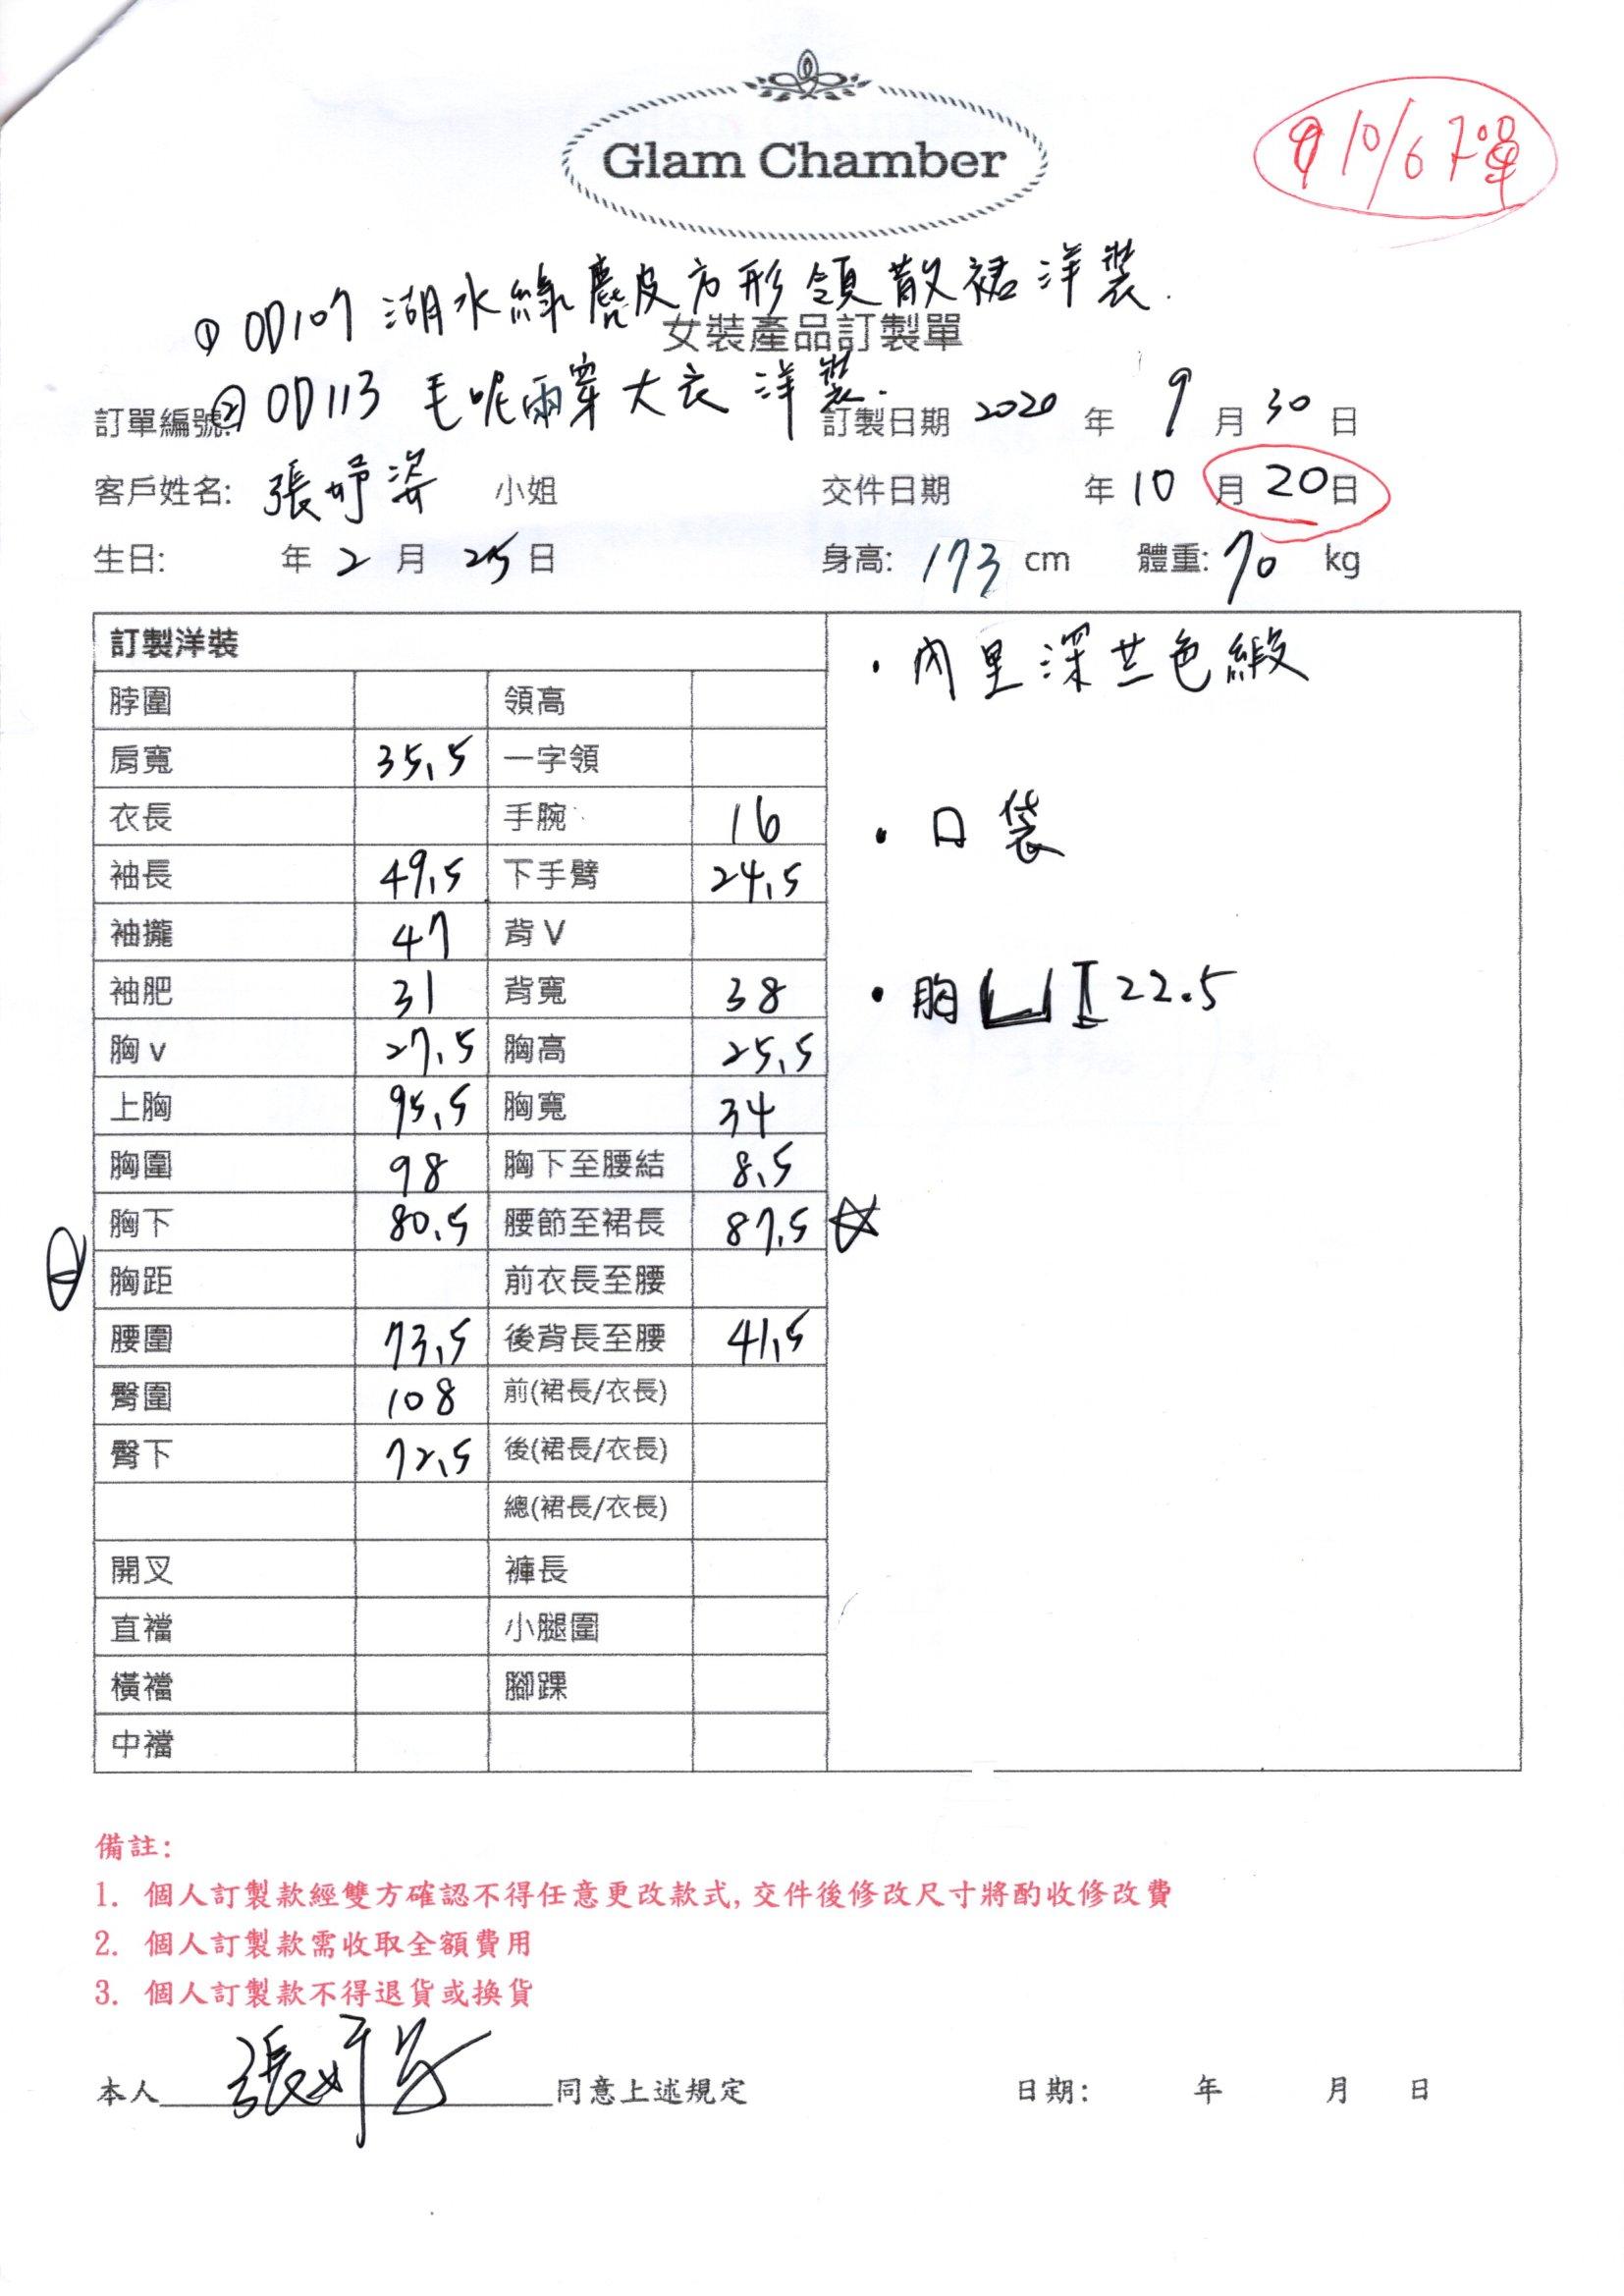 Glam Chamber
10/6
① OD107 湖水綠麂皮方形領散裙洋裝.
女裝產品訂製單
② OD113 毛呢兩穿大衣洋裝.
訂單編號: 訂製日期 2020 年 9 月 30 日
客戶姓名: 張妤姿 小姐 交件日期 年 10 月 20 日
生日: 年 2 月 25 日 身高: 173 cm 體重: 70 kg
訂製洋裝
脖圍 領高
肩寬 35.5 一字領
衣長 手腕 16
袖長 49.5 下手臂 24.5
袖攏 47 背 V
袖肥 31 背寬 38
胸 v 27.5 胸高 25.5
上胸 95.5 胸寬 34
胸圍 98 胸下至腰結 8.5
胸下 80.5 腰節至裙長 87.5 ☆
胸距 前衣長至腰
腰圍 73.5 後背長至腰 41.5
臀圍 108 前(裙長/衣長)
臀下 72.5 後(裙長/衣長)
總(裙長/衣長)
開叉 褲長
直襠 小腿圍
橫襠 腳踝
中襠
· 內里深芷色緞
· 口袋
· 胸 22.5
備註:
1. 個人訂製款經雙方確認不得任意更改款式,交件後修改尺寸將酌收修改費
2. 個人訂製款需收取全額費用
3. 個人訂製款不得退貨或換貨
本人 張妤姿 同意上述規定 日期: 年 月 日